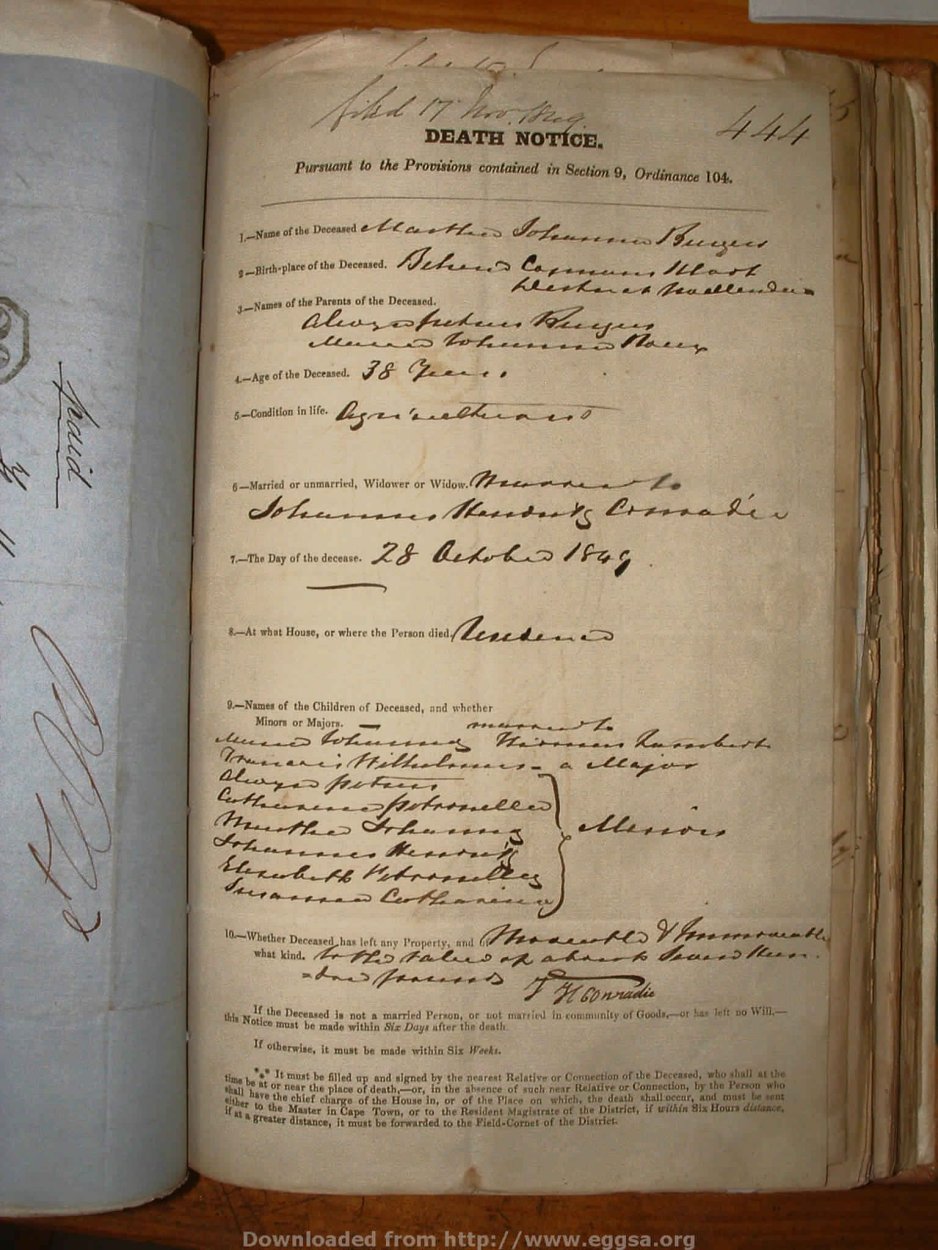 filed 17 Nov. 1849
444
DEATH NOTICE.
Pursuant to the Provisions contained in Section 9, Ordinance 104.
1.—Name of the Deceased Martha Johanna Burgers
2.—Birth-place of the Deceased. Behind Cogmans Kloof
District Swellendam
3.—Names of the Parents of the Deceased.
Petrus Burgers
Maria Johanna
4.—Age of the Deceased. 38 Years
5.—Condition in life. Agriculturist
6.—Married or unmarried, Widower or Widow. Married to
Johannes Hendrik Conradie
7.—The Day of the decease. 28 October 1849
8.—At what House, or where the Person died.
9.—Names of the Children of Deceased, and whether
Minors or Majors. — married to
Maria Johanna Lambert
Francois Wilhelmus - a Major
Petrus
Catharina Petronella
Martha Johanna Minors
Johannes Hendrik
Elizabeth Petronella
Susanna Catharina
10.—Whether Deceased has left any Property, and of Moveable & Immoveable
what kind. to the value of about Seven Hun
=dred pounds J H Conradie
If the Deceased is not a married Person, or not married in community of Goods,—or has left no Will.—
this Notice must be made within Six Days after the death.
If otherwise, it must be made within Six Weeks.
*** It must be filled up and signed by the nearest Relative or Connection of the Deceased, who shall at the
time be at or near the place of death,—or, in the absence of such near Relative or Connection, by the Person who
shall have the chief charge of the House in, or of the Place on which, the death shall occur, and must be sent
either to the Master in Cape Town, or to the Resident Magistrate of the District, if within Six Hours distance,
if at a greater distance, it must be forwarded to the Field-Cornet of the District.
paid
Downloaded from http://www.eggsa.org